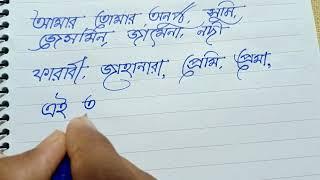 আমার তোমার অনন্ত, ভূমি,
জেসমিন, জামেনা, নদী
ফারাবী, জাহানারা, প্রেমি, প্রেমা,
এই ত